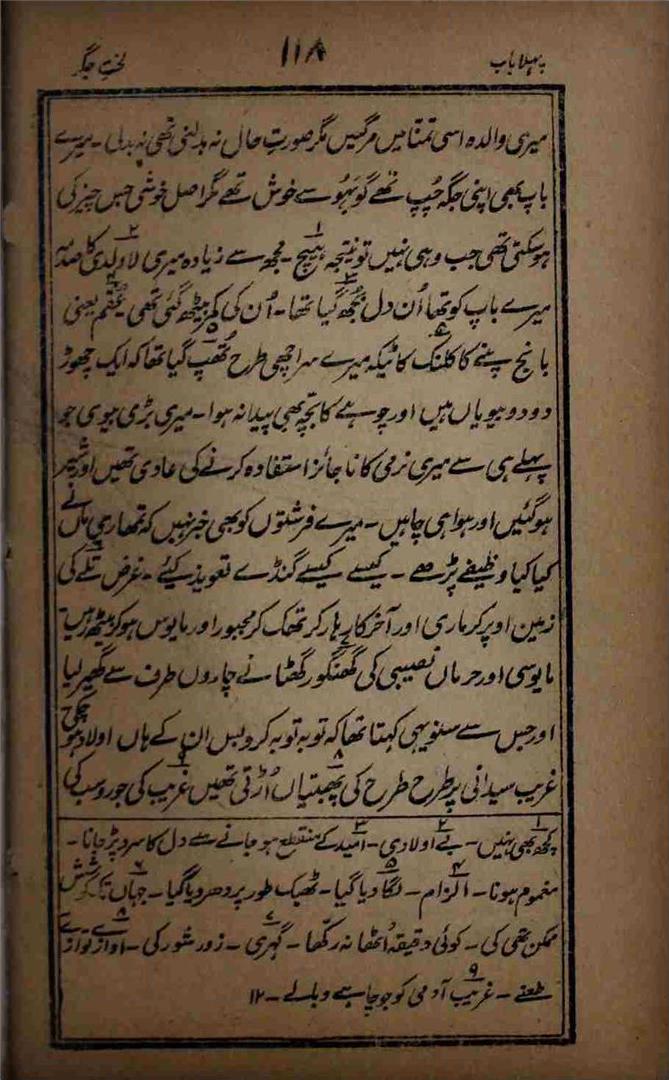 پہلا باب ۱۱۸ لختِ جگر
میری والدہ اسی تمنا میں مرگئیں مگر صورتِ حال نہ بدلنی تھی نہ بدلی ۔ میرے
باپ بھی اپنی جگہ چُپ تھے گو بہُو سے خوش تھے مگر اصل خوشی جس چیز کی
ہو سکتی تھی جب وہی نہیں تو نتیجہ ہیچ ۱ ۔ مجھ سے زیادہ میری لاولدی ۲ کا صدمہ
میرے باپ کو تھا اُن دل بجھ گیا تھا ۳ ۔ اُن کی کمر بیٹھ گئی تھی عُقم یعنی
بانج پنے کا کلنک ۴ کا ٹیکہ میرے سر اچھی طرح تھُپ گیا ۵ تھا کہ ایک چھوڑ
دو دو بیویاں ہیں اور چوہے کا بچہ بھی پیدا نہ ہوا ۔ میری بڑی بیوی جو
پہلے ہی سے میری نرمی کا ناجائز استفادہ کرنے کی عادی تھیں اور شیر
ہوگئیں اور ہوا ہی چاہیں ۔ میرے فرشتوں کو بھی خبر نہیں کہ تمھاری ماں نے
کیا کیا وظیفے پڑھے ۔ کیسے کیسے گنڈے تعویذ کیئے ۔ غرض تلے ۶ کی
زمین اوپر کر ماری اور آخر کار ہار کر تھک کر مجبور اور مایوس ہو کر بیٹھ رہیں
مایوسی اور حرماں نصیبی کی گھنگور ۷ گھٹا نے چاروں طرف سے گھیر لیا
اور جس سے سنو یہی کہتا تھا کہ توبہ توبہ کرو بس ان کے ہاں اولاد ہو چکی
غریب سیدانی پر طرح طرح کی پھبتیاں ۸ اُڑتی تھیں غریب ۹ کی جورو سب کی
۱ کچھ بھی نہیں ۔ ۲ بے اولادی ۔ ۳ امید کے منقطع ہوجانے سے دل کا سرد پڑ جانا ۔
مغموم ہونا ۔ ۴ الزام ۔ ۵ لگا دیا گیا ۔ ٹھیک طور پر دھر دیا گیا ۔ ۶ جہاں تک کوشش
ممکن تھی کی ۔ کوئی دقیقہ اُٹھا نہ رکھا ۔ ۷ گہری ۔ زور شور کی ۔ ۸ آوازے توازے
طعنے ۔ ۹ غریب آدمی کو جو چاہے دبا لے ۔ ۱۲